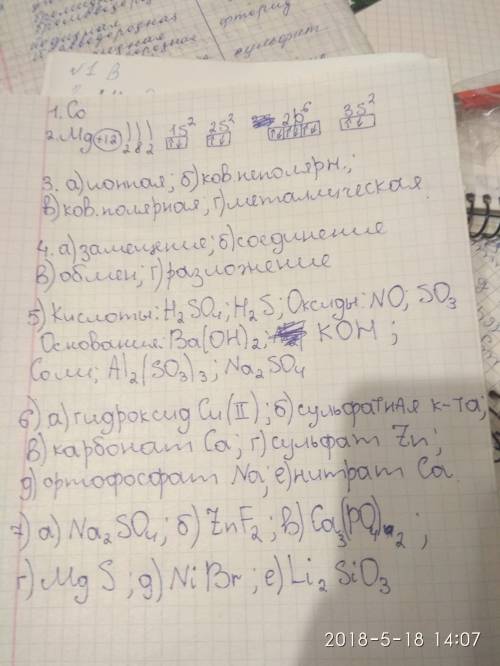 сульфит
№1 В
1. Co
2. Mg +12 ) ) ) 2 8 2 1s² 2s² 2p⁶ 3s²
3. а) ионная; б) ков. неполярн.;
в) ков. полярная; г) металлическая
4. а) замещение; б) соединение
в) обмен; г) разложение
5) Кислоты: H₂SO₄; H₂S; Оксиды: NO; SO₃
Основания: Ba(OH)₂; KOH;
Соли; Al₂(SO₃)₃; Na₂SO₄
6) а) гидроксид Cu(II); б) сульфатная к-та;
в) карбонат Ca; г) сульфат Zn;
д) ортофосфат Na; е) нитрат Ca
7) а) Na₂SO₄; б) ZnF₂; в) Ca₃(PO₄)₂;
г) MgS; д) NiBr; е) Li₂SiO₃
2018-5-18 14:07